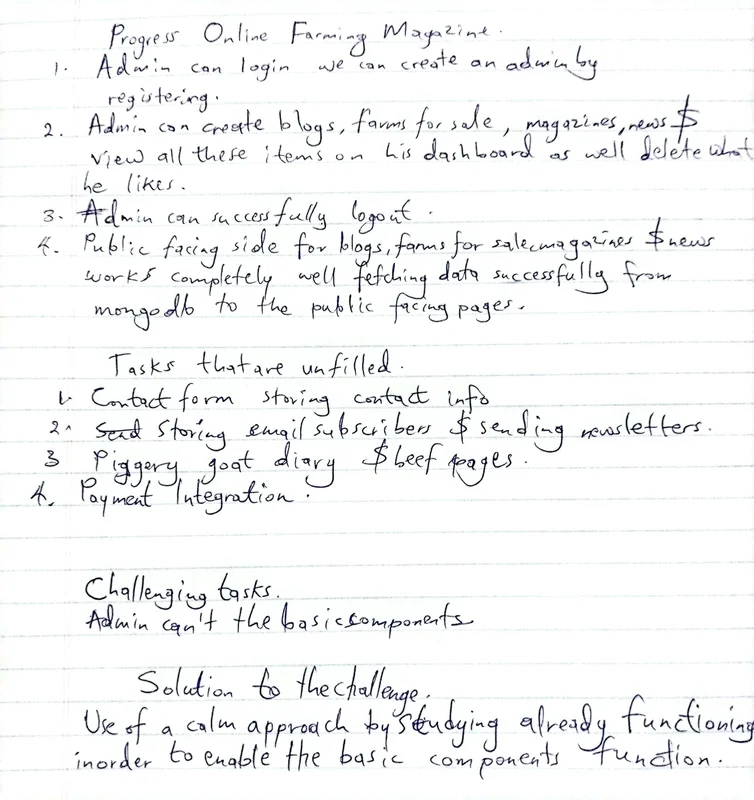 Progress Online Farming Magazine.
1. Admin can login we can create an admin by
registering.
2. Admin can create blogs, farms for sale, magazines, news $
view all these items on his dashboard as well delete what
he likes.
3. Admin can successfully logout.
4. Public facing side for blogs, farms for sale, magazines $ news
works completely well fetching data successfully from
mongodb to the public facing pages.
Tasks that are unfilled.
1. Contact form storing contact info
2. Storing email subscribers $ sending newsletters.
3 Piggery goat diary $ beef pages.
4. Payment Integration.
Challenging tasks.
Admin can't the basic components
Solution to the challenge.
Use of a calm approach by studying already functioning
inorder to enable the basic components function.